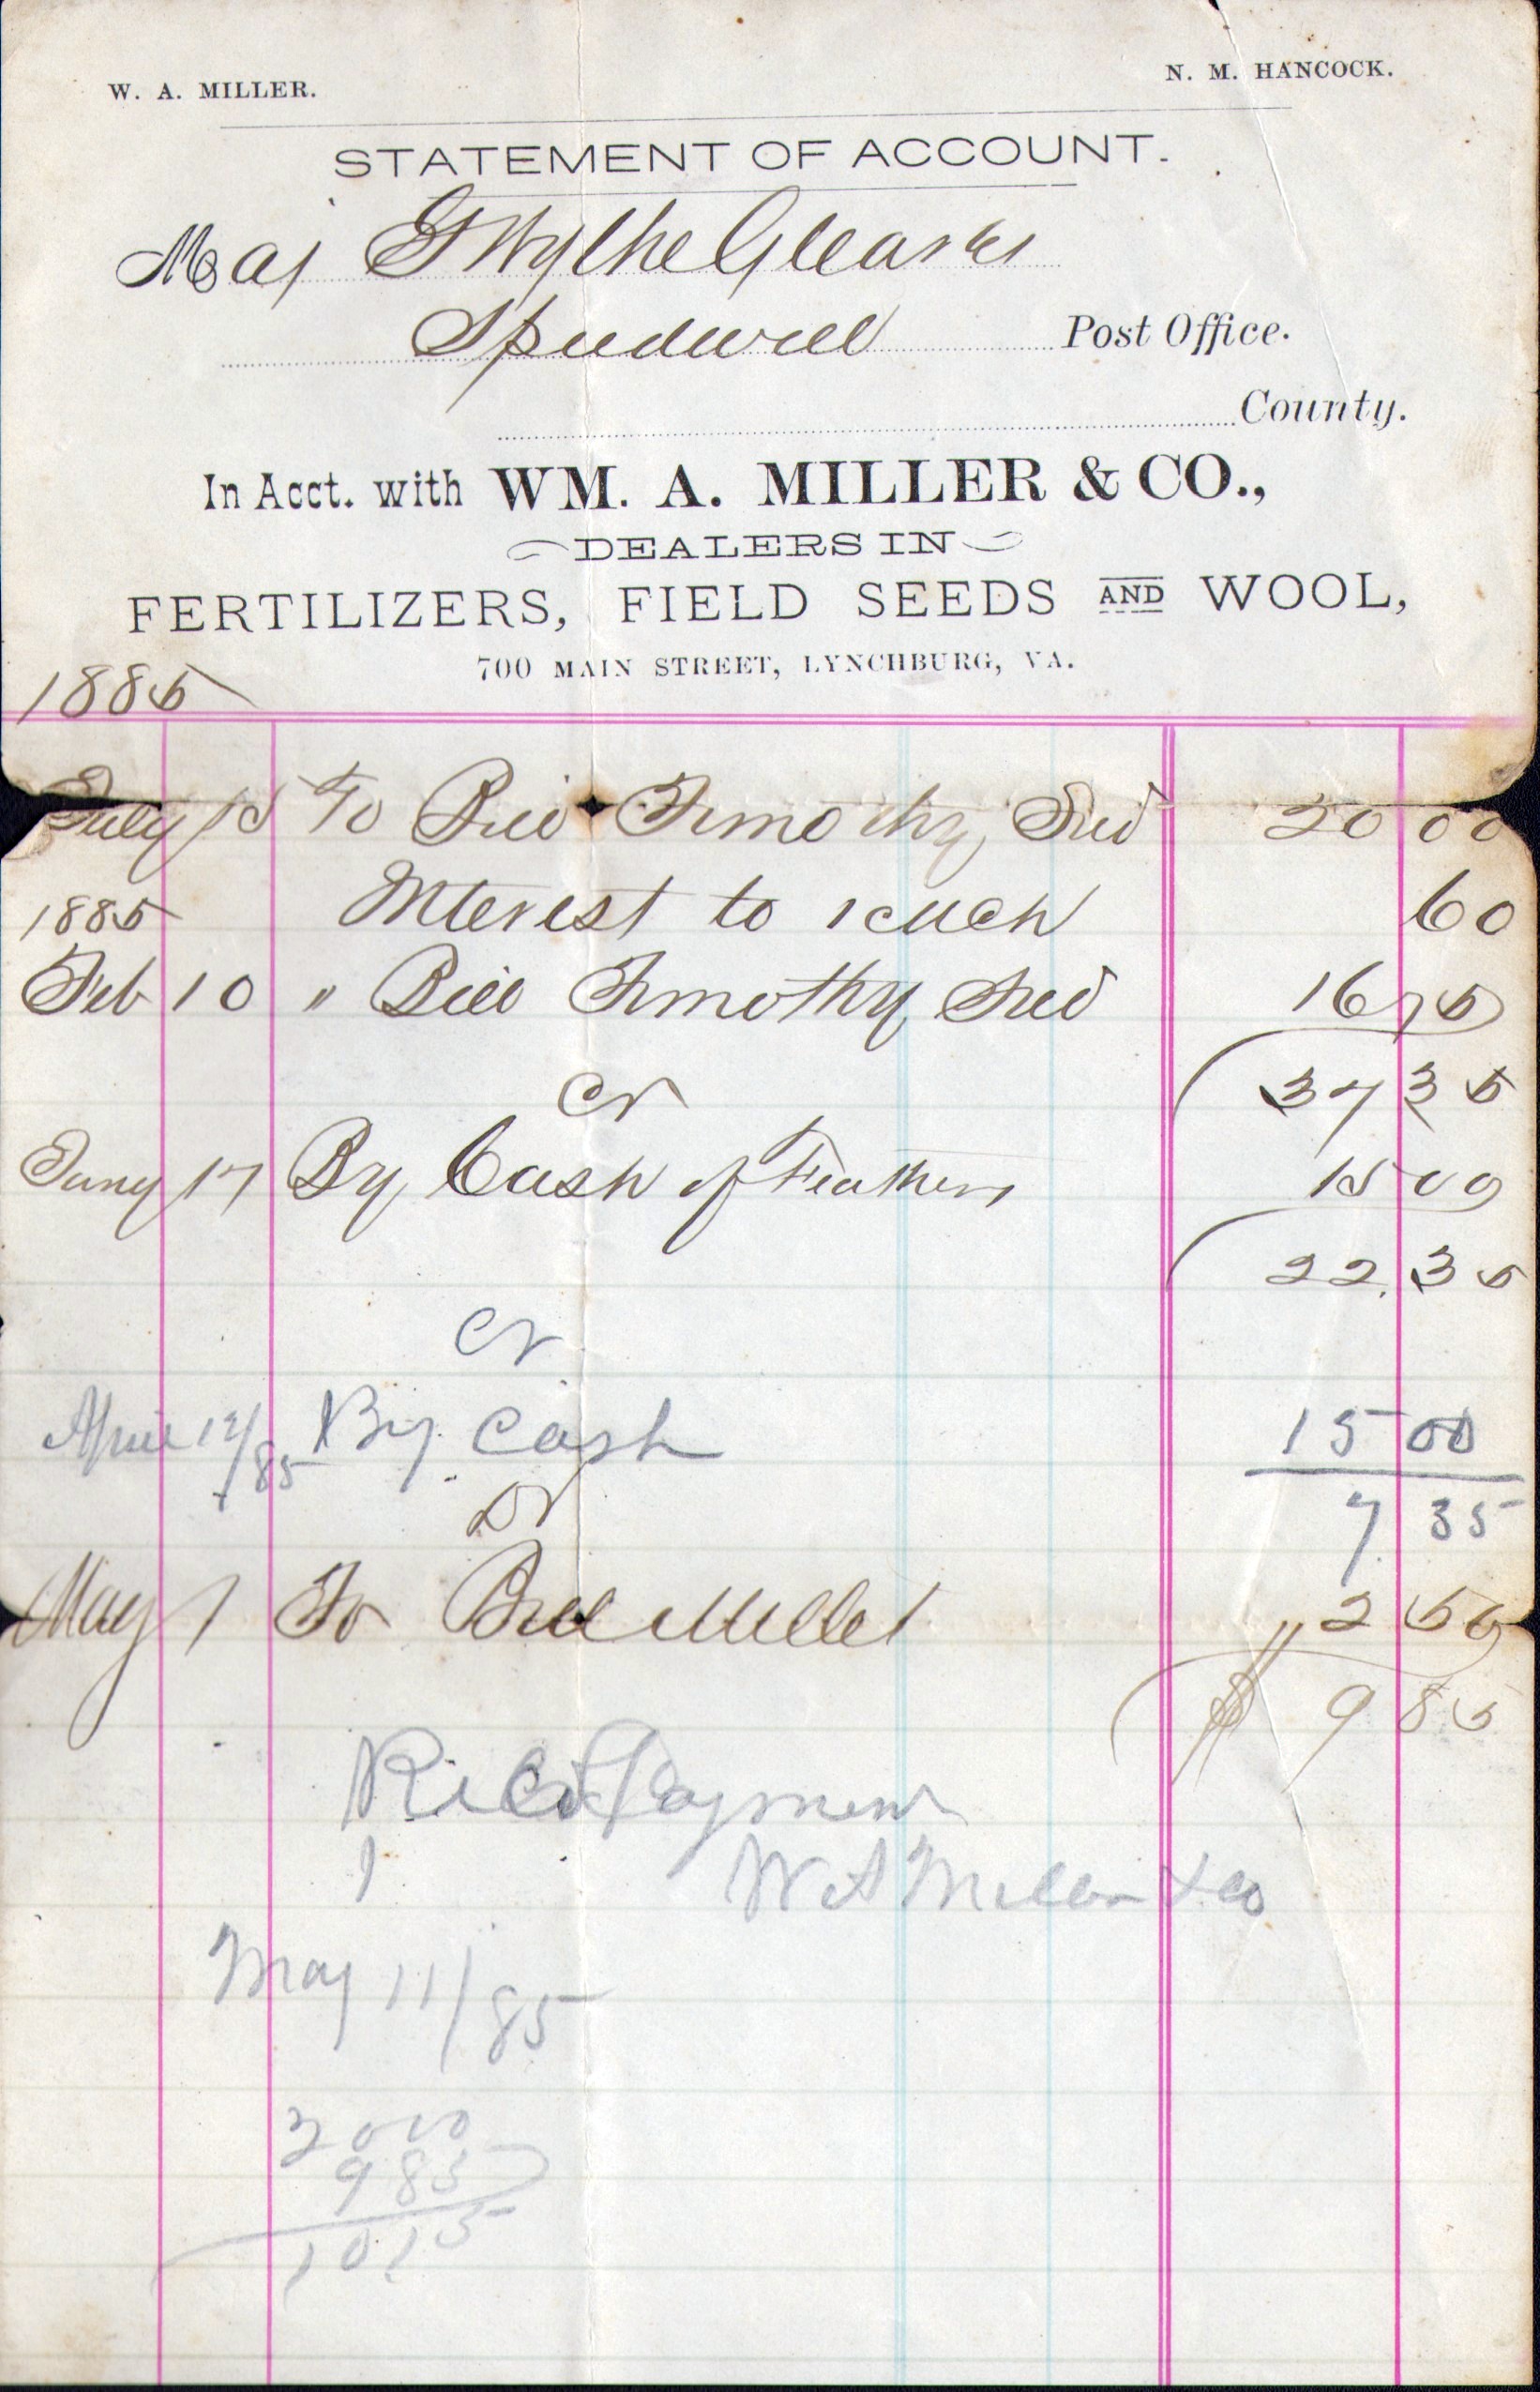 W. A. MILLER.
N. M. HANCOCK.
STATEMENT OF ACCOUNT.
Maj G Wythe Gleaves
Speedwell Post Office.
County.
In Acct. with WM. A. MILLER & CO.,
DEALERS IN
FERTILIZERS, FIELD SEEDS AND WOOL,
700 MAIN STREET, LYNCHBURG, VA.
1885
July 15 To Bill Timothy Seed 20 00
1885 Interest to 60
Feb 10 " Bill Timothy Seed 16 75
Cr 37 35
Jany 17 By Cash of Feathers 15 00
22.35
Cr
April 12/85 By Cash 15 00
7 35
Dr
May 1 To Bill Millet 2 50
$ 9 85
Recd Payment
W A Miller & Co
May 11/85
2000
985
1015